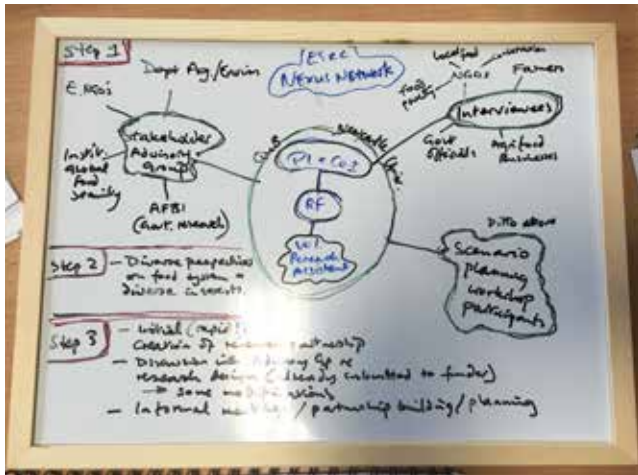 Step 1
ESRC
NEXUS NETWORK
Dept Ag./Environ
E.NGOs
Stakeholder
Advisory
Group
Instit.
global
food
security
AFBI
(Govt. research)
QUB
Newcastle Univ.
PI + CoIs
RF
Research
Assistant
Local food
NGOs
Food
poverty
Farmers
Interviewees
Govt
officials
Agifood
Businesses
Ditto above
Scenario
planning
workshop
participants
Step 2
- Diverse perspectives
on food system +
diverse interests.
Step 3
- Initial (rapid!)
Creation of research partnership
- Discussion with Advisory Gp re
research design (already submitted to funder)
→ some modifications
- Informal meetings / partnership building / planning